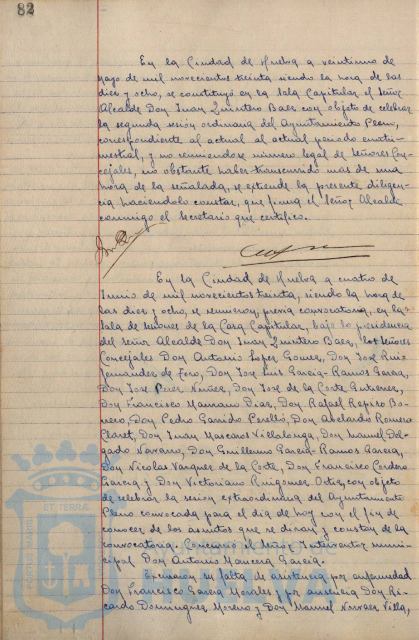 82
En la Ciudad de Huelva a veintiuno de
mayo de mil novecientos treinta siendo la hora de las
diez y ocho, se constituyó en la Sala Capitular el Señor
Alcalde Don Juan Quintero Baez con objeto de celebrar
la segunda sesión ordinaria del Ayuntamiento Pleno,
correspondiente al actual al actual periodo cuatri-
mestral, y no reuniendose número legal de Señores Con-
cejales, no obstante haber transcurrido mas de una
hora de la señalada, se extiende la presente diligen-
cia haciendolo constar, que firma el Señor Alcalde
conmigo el Secretario que certifico.
En la Ciudad de Huelva a cuatro de
Junio de mil novecientos treinta, siendo la hora de
las diez y ocho, se reunieron, previa convocatoria, en la
Sala de sesiones de la Casa Capitular, bajo la presidencia
del señor Alcalde Don Juan Quintero Baez, los Señores
Concejales Don Antonio Lopez Gomez, Don José Ruiz
Hernandez de Toro, Don José Luis Garcia-Ramos Garcia,
Don José Perez Nuñez, Don José de la Corte Gutierrez,
Don Francisco Mamano Diaz, Don Rafael Repiso Bo-
rrero, Don Pedro Garrido Perelló, Don Abelardo Romero
Claret, Don Juan Mascaros Villalonga, Don Manuel Del-
gado Navarro, Don Guillermo Garcia-Ramos Garcia,
Don Nicolas Vazquez de la Corte, Don Francisco Cordero
Garcia y Don Victoriano Ruigomez Ortiz, con objeto
de celebrar la sesion extraordinaria del Ayuntamiento
Pleno convocada para el dia de hoy con el fin de
conocer de los asuntos que se diran y constan de la
convocatoria. Concurrió el Señor Interventor muni-
cipal Don Antonio Mancera Garcia.
Excusaron su falta de asistencia por enfermedad
Don Francisco Garcia Morales y por ausencia Don Ri-
cardo Dominguez Moreno y Don Manuel Narvaez Villa,
ET TERRÆ